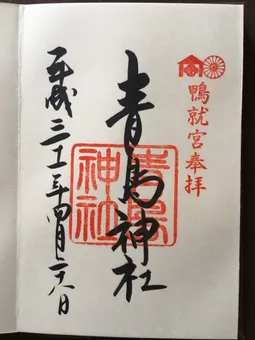 鴨就宮奉拝
青島神社
青島
神社
平成三十一年四月二十八日